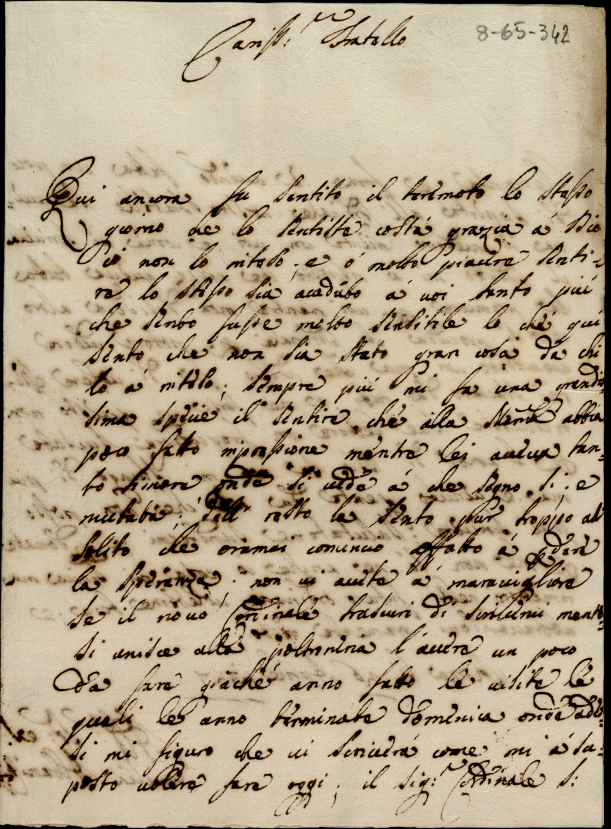 8-65-342
Cariss.mo Fratello
Qui ancora fu sentito il teremoto lo stesso
giorno che lo sentiste costà grazia à Dio
io non lo ritesi, e ò molto piacere senti-
re lo stesso sia acaduto à voi tanto più
che sento fusse molto sensibile lo che qui
sento che non sia stato gran cosa da chi
lo à riteso; sempre più mi fa una grandis
sima specie il sentire che alla abbia
poco fatto impressione mentre lei aveva tan-
to timore onde si vede à che segno si è
mutata; dell resto la sento pur troppo al
solito che oramai comincio affatto à perdere
la speranza; non vi avete à maravigliare
se il novo Cardinale trascuri di scrivervi mentre
si unisce alla poltroneria l'avere un poco
da fare giache anno fatto le visite le
quali le anno terminate domenica onde
si mi figuro che vi scriverà come mi à su-
posto volere fare oggi; il Sig.re Cardinale S: